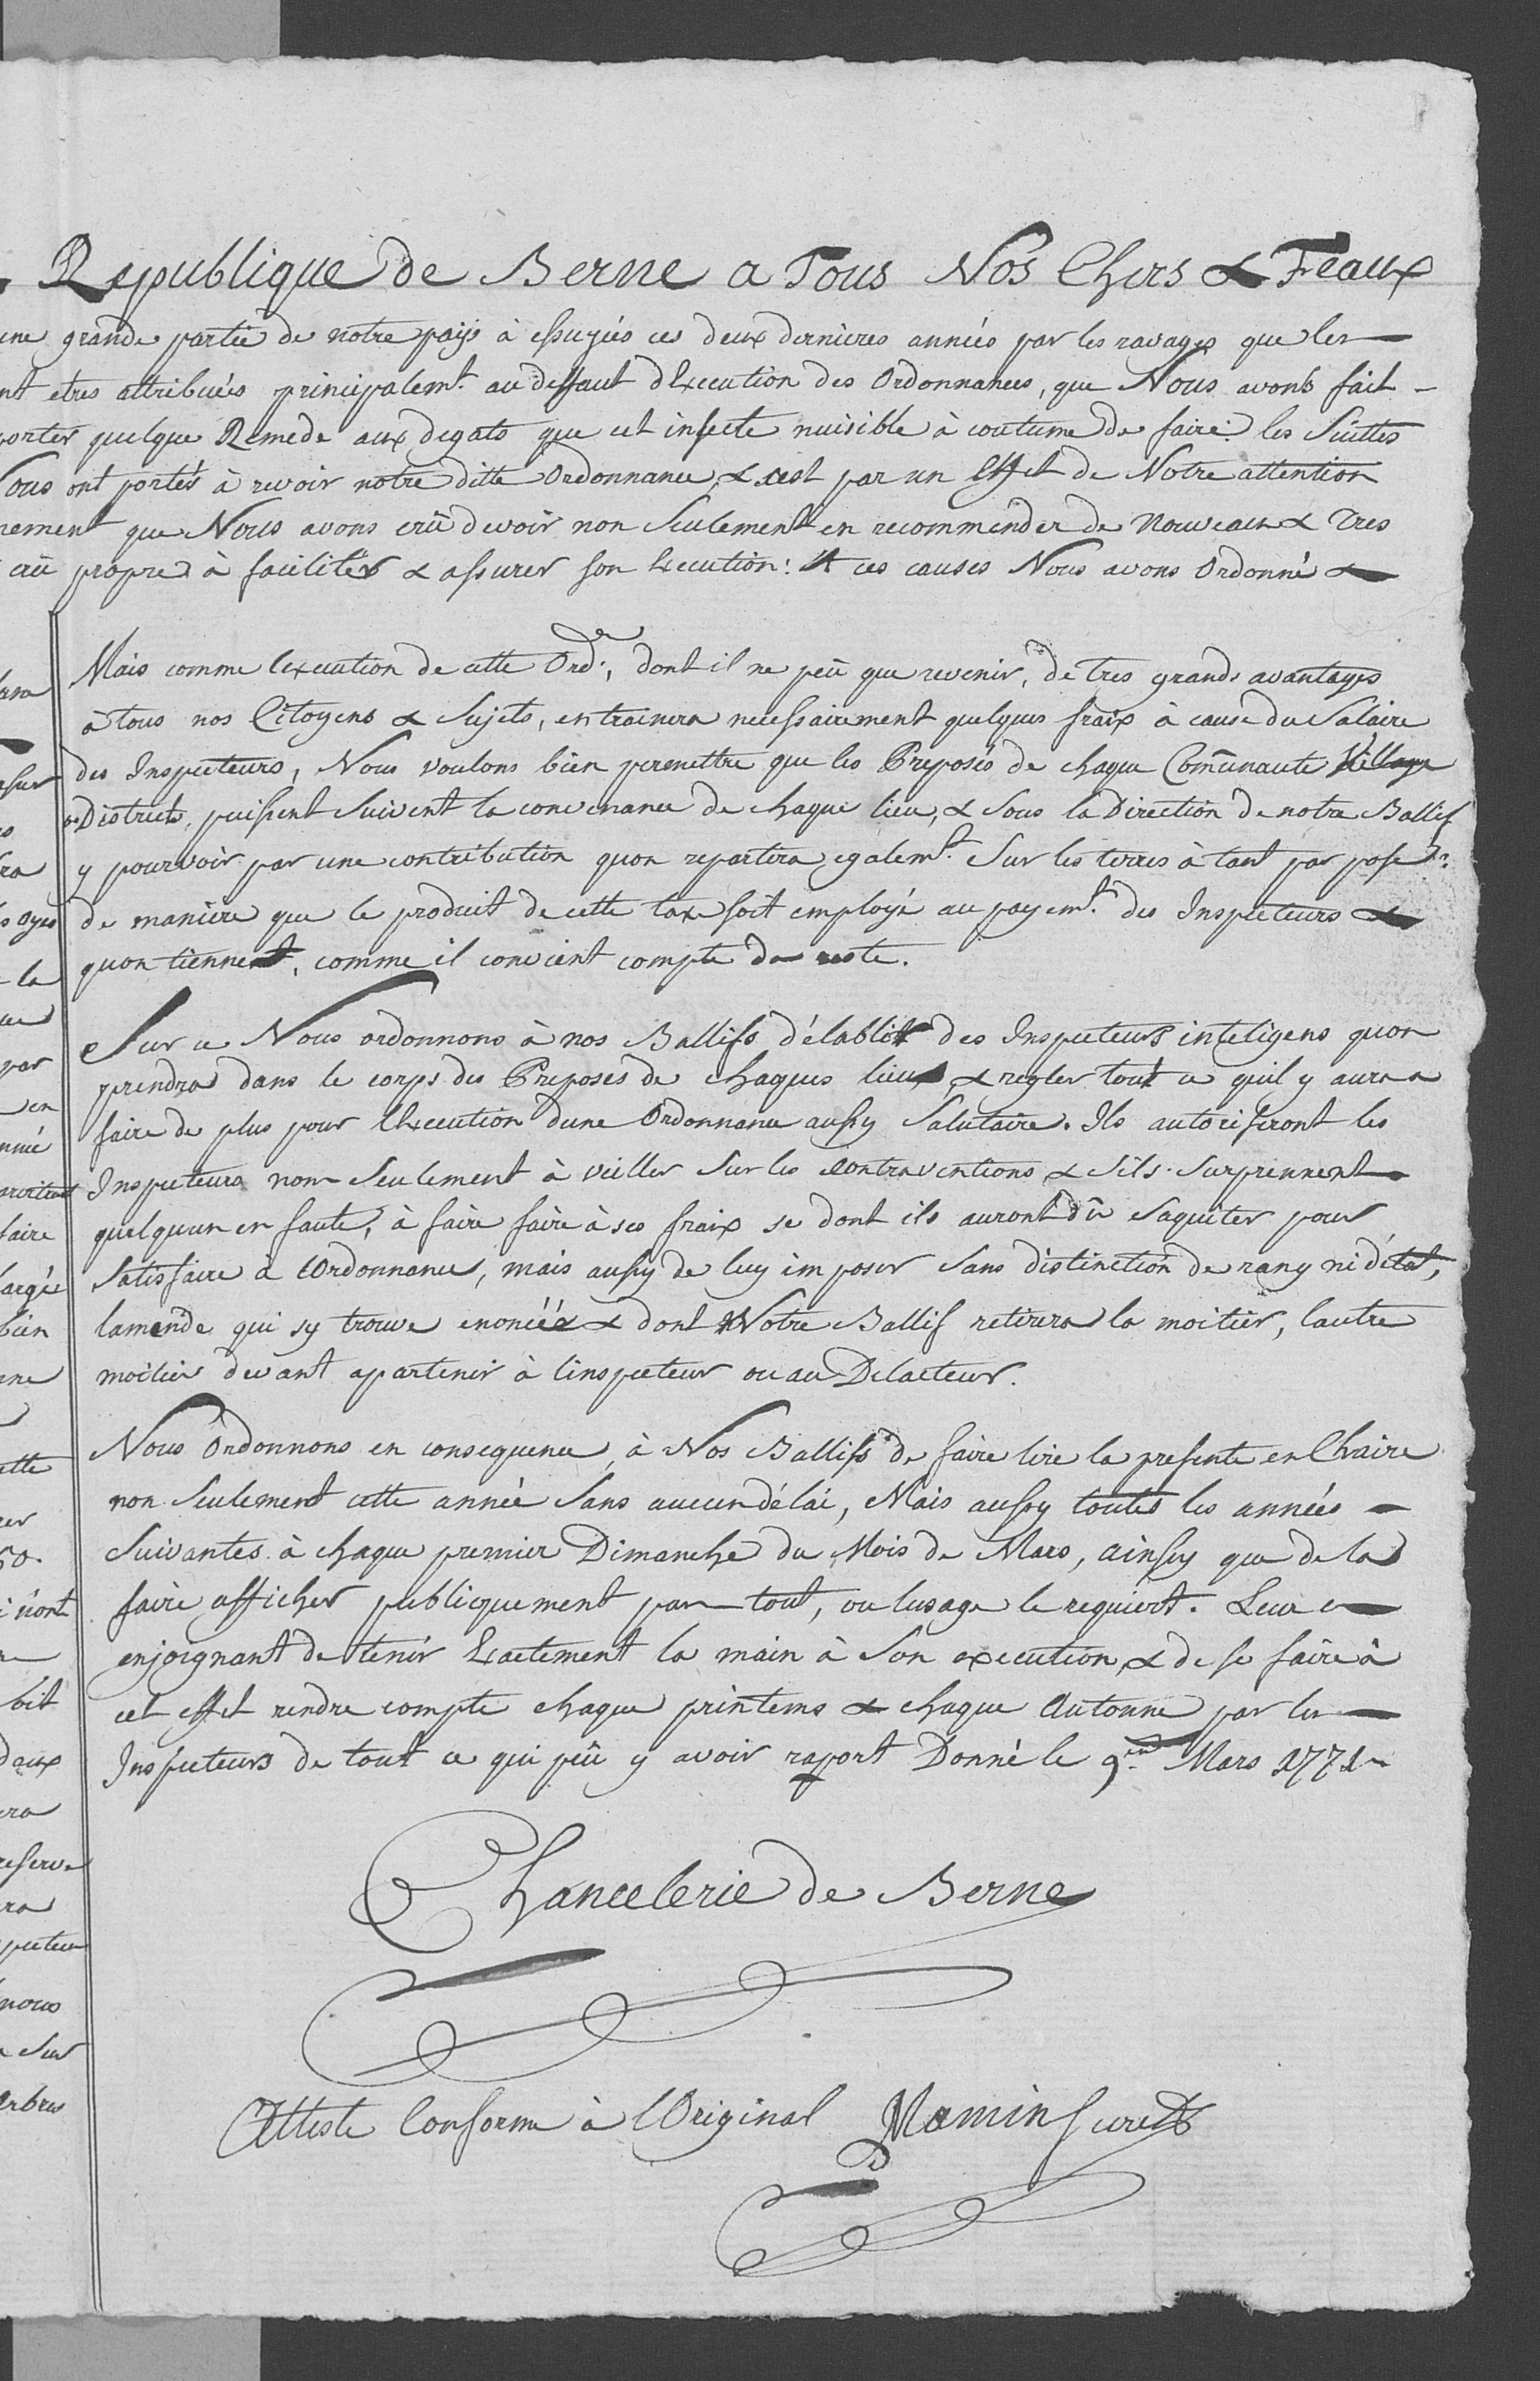 Republique de Berne a Tous Nos Chers & Feaux
une grande partie de notre pays à essuyés ces deux dernieres années par les ravages que les
nt etres attribués principalemt. au deffaut dExecution des Ordonnances, que Nous avons fait
porter quelque Remede aux degats que cet insecte nuisible à coutume de faire: les Suittes
Nous ont portés à revoir notre ditte Ordonnance, & cest par un Effet de Notre attention
nement que Nous avons crû devoir non Seulement en recommender de Nouveau & Tres
crû propre à faciliter & assurer son Execution: A ces causes Nous avons Ordonné &
Mais comme lexecution de cette Ordce., dont il ne peü que revenir, de Tres grands avantages
à tous nos Citoyens & Sujets, entrainera necessairement quelques fraix à cause du Salaire
des Inspecteurs, Nous voulons bien permettre que les Preposés de chaque Comunaute Village
ou District, puissent Suivent la convenance de chaque lieu, & Sous la Direction de notre Ballif
y pourvoir par une contribution quon repartira egalemt. Sur les terres à tant par pose
de maniere que le produit de cette taxe soit employé au payemt. des Inspecteurs &
quon tiennent, comme il convient compte du reste.
Sur ce Nous ordonnons à nos Ballifs d'établir des Inspecteurs inteligens quon
prendra dans le corps des Preposés de chaques lieux, & regler tout ce quil y aura a
faire de plus pour lExecution dune Ordonnance aussy Salutaire. Ils autoriseront les
Inspecteurs non Seulement à veiller Sur les Contraventions & Sils Surprennent
quelquun en faute, à faire faire à ses fraix se dont ils auront dû Saquiter pour
Satisfaire à lOrdonnance, mais aussy de luy imposer Sans distinction de rang ni détat,
lamende qui sy trouve enoncéé & dont Notre Ballif retirera la moitier, lautre
moitier devant apartenir à linspecteur ou au Delateur.
Nous Ordonnons en consequence, à Nos Ballifs de faire lire la presente en Chaire
non Seulement cette année Sans aucun délai, Mais aussy toutes les années
Suivantes à chaque premier Dimanche du Mois de Mars, ainsy que de la
faire afficher publicquement par tout, ou lusage le requiert. Leur
enjoignant de tenir Exactement la main à Son execution, & de se faire à
cet effet rendre compte chaque printems & chaque Autonne par les
Inspecteurs de tout ce qui peü y avoir raport Donné le 9e. Mars 1771
Chancelerie de Berne
Atteste Conforme à lOriginal Mamin